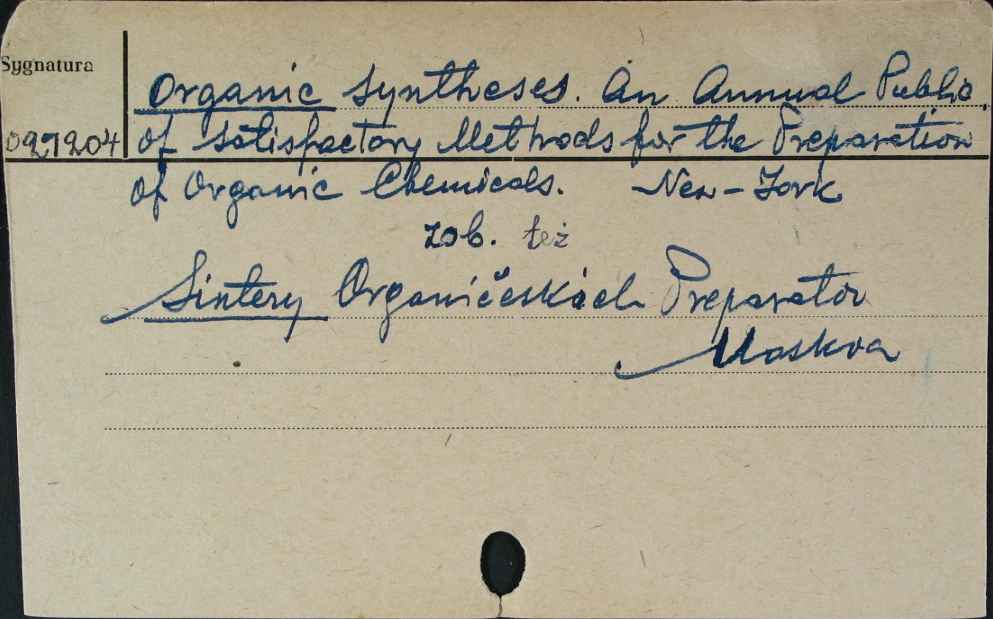 Sygnatura
Organic Syntheses. An Annual Public.
097204 of Satisfactory Methods for the Preparation
of Organic Chemicals. New-York
zob. też
Sintezy Organičeskich Preparatov
Moskva